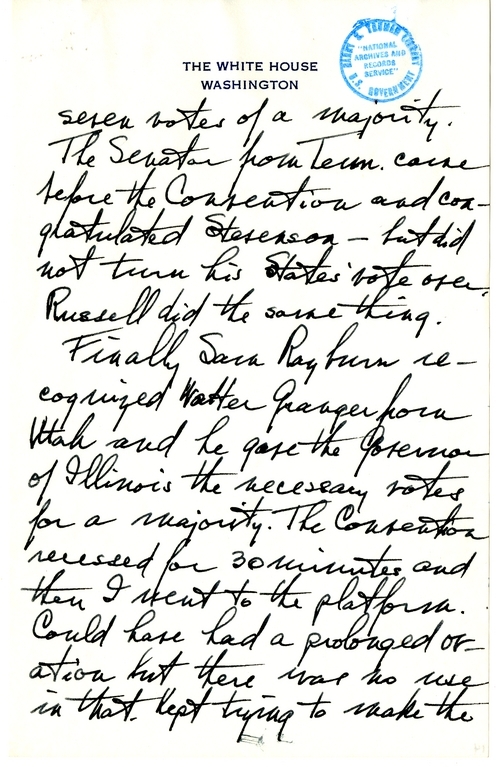 THE WHITE HOUSE
WASHINGTON
HARRY S. TRUMAN LIBRARY
"NATIONAL
ARCHIVES AND
RECORDS
SERVICE"
U.S. GOVERNMENT
seven votes of a majority.
The Senator from Tenn. came
before the Convention and con-
gratulated Stevenson – but did
not turn his States' vote over.
Russell did the same thing.
Finally Sam Rayburn re-
cognized Walter Granger from
Utah and he gave the Governor
of Illinois the necessary votes
for a majority. The Convention
recessed for 30 minutes and
then I went to the platform.
Could have had a prolonged ov-
ation but there was no use
in that. Kept trying to make the